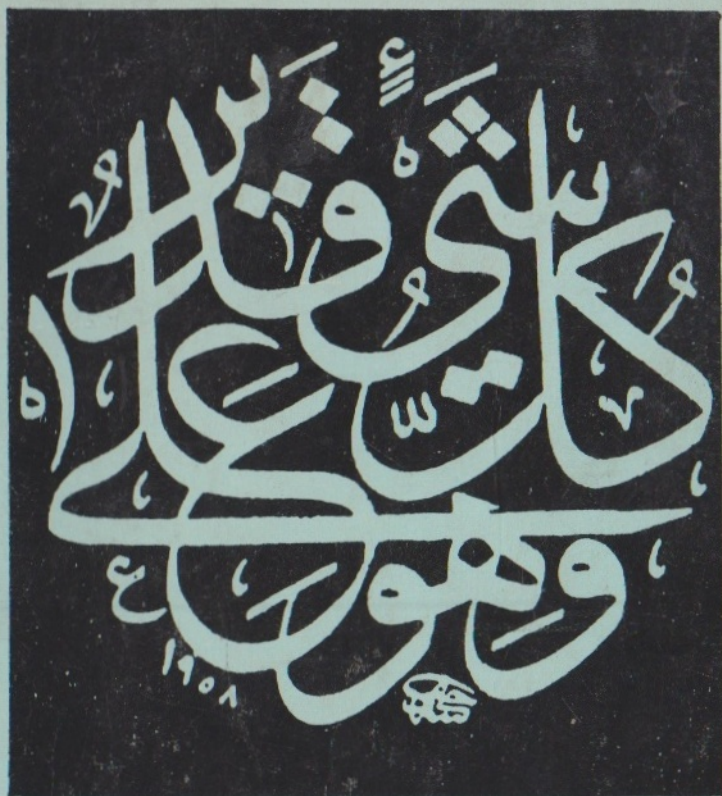 وَهُوَ عَلَى كُلِّ شَيْءٍ قَدِيرٌ
١٩٥٨